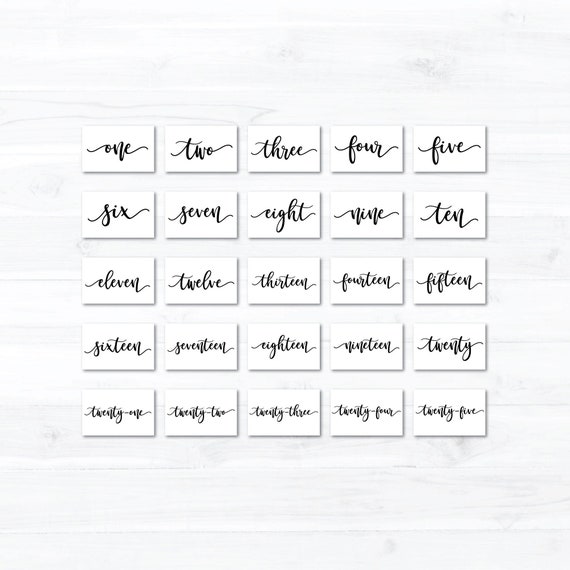 one two three four five
six seven eight nine ten
eleven twelve thirteen fourteen fifteen
sixteen seventeen eighteen nineteen twenty
twenty-one twenty-two twenty-three twenty-four twenty-five